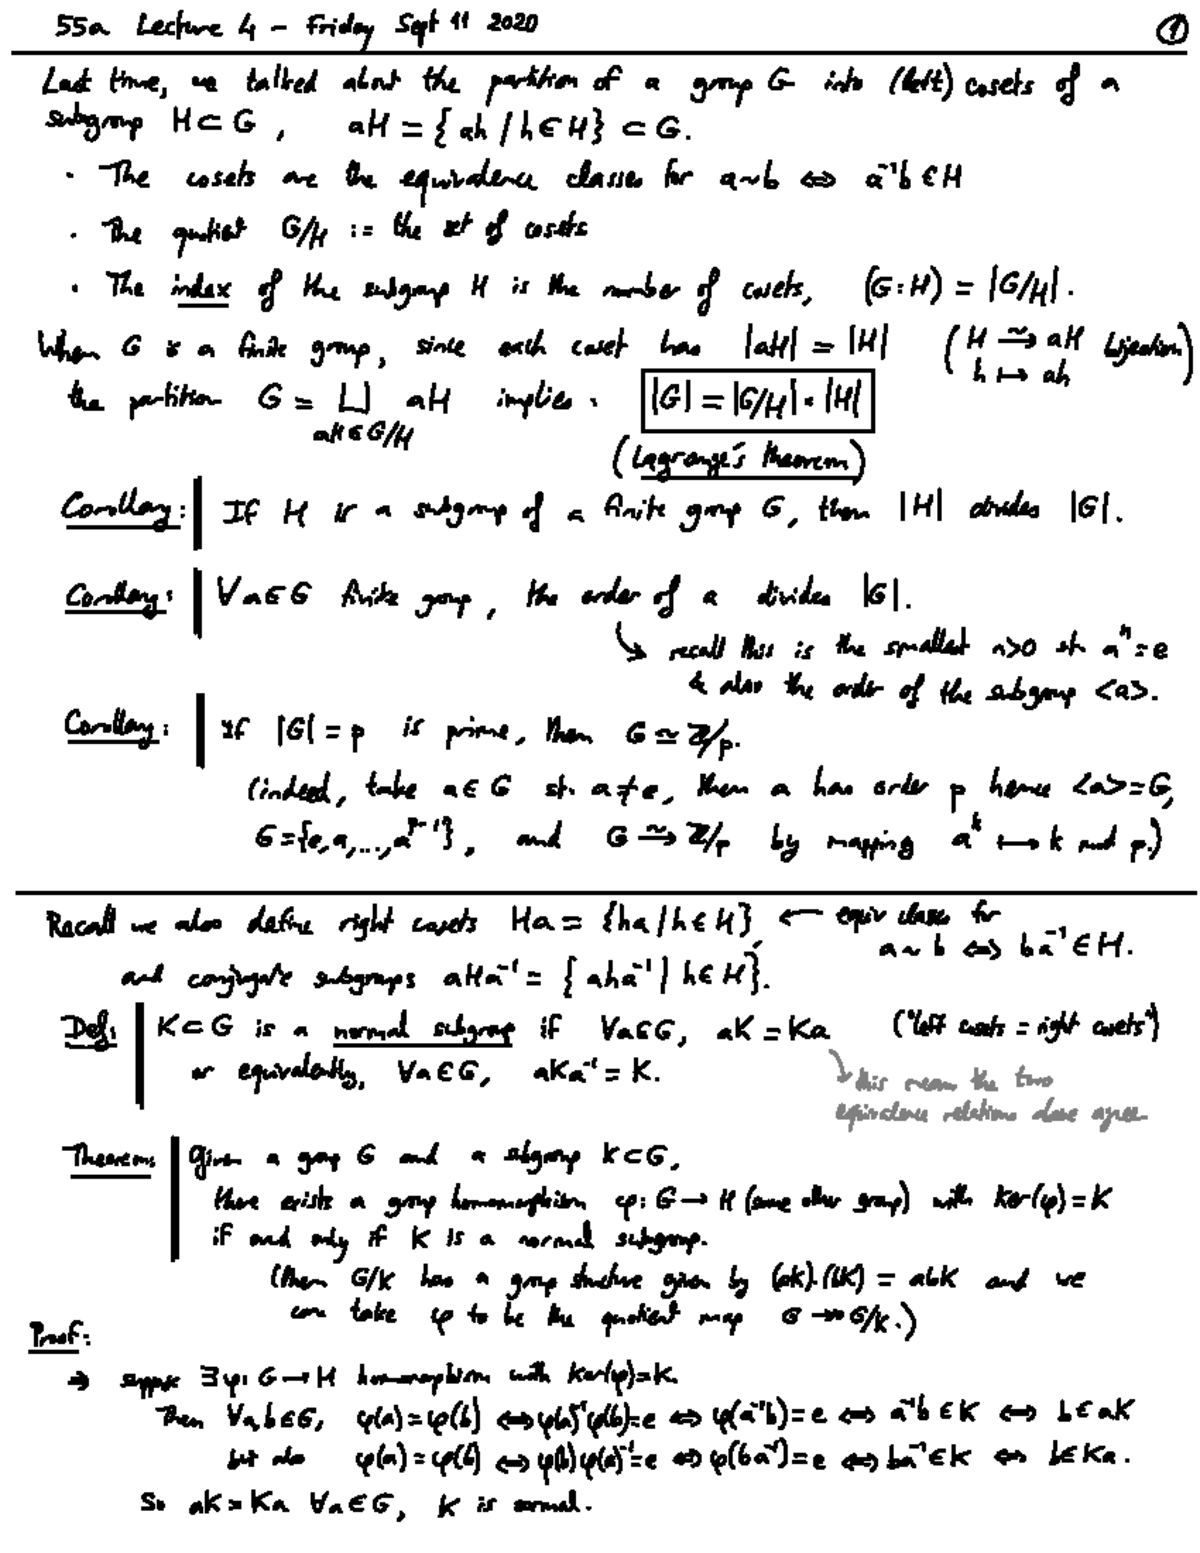 55a Lecture 4 – Friday Sept 11 2020 ①
Last time, we talked about the partition of a group G into (left) cosets of a
subgroup H⊂G, aH = { ah / h∈H} ⊂ G.
· The cosets are the equivalence classes for a~b ⇔ a⁻¹b ∈ H
· The quotient G/H := the set of cosets
· The index of the subgroup H is the number of cosets, (G:H) = |G/H|.
When G is a finite group, since each coset has |aH| = |H| (H ≃→ aH bijection)
h ↦ ah
the partition G = ⊔ aH implies: |G| = |G/H|·|H|
aH∈G/H
(Lagrange's theorem)
Corollary: | If H is a subgroup of a finite group G, then |H| divides |G|.
Corollary: | ∀a∈G finite group, the order of a divides |G|.
↳ recall this is the smallest n>0 st. aⁿ=e
& also the order of the subgroup <a>.
Corollary: | If |G| = p is prime, then G ≃ ℤ/p.
(indeed, take a∈G st. a≠e, then a has order p hence <a>=G,
G={e,a,...,aᵖ⁻¹}, and G ≃→ ℤ/p by mapping aᵏ ↦ k mod p.)
Recall we also define right cosets Ha = {ha / h∈H}, ← equiv classes for
a~b ⇔ ba⁻¹∈H.
and conjugate subgroups aHa⁻¹ = { aha⁻¹ | h∈H}.
Def: | K⊂G is a normal subgroup if ∀a∈G, aK = Ka ("left cosets = right cosets")
or equivalently, ∀a∈G, aKa⁻¹ = K.
↳ this means the two
equivalence relations above agree.
Theorem: | Given a group G and a subgroup K⊂G,
there exists a group homomorphism φ: G→H (some other group) with ker(φ)=K
if and only if K is a normal subgroup.
(then G/K has a group structure given by (aK).(bK) = abK and we
can take φ to be the quotient map G ↠ G/K.)
Proof:
⇒ suppose ∃φ: G→H homomorphism with ker(φ)=K.
Then ∀a,b∈G, φ(a)=φ(b) ⇔ φ(a)⁻¹φ(b)=e ⇔ φ(a⁻¹b)=e ⇔ a⁻¹b∈K ⇔ b∈aK
but also φ(a)=φ(b) ⇔ φ(b)φ(a)⁻¹=e ⇔ φ(ba⁻¹)=e ⇔ ba⁻¹∈K ⇔ b∈Ka.
So aK=Ka ∀a∈G, K is normal.